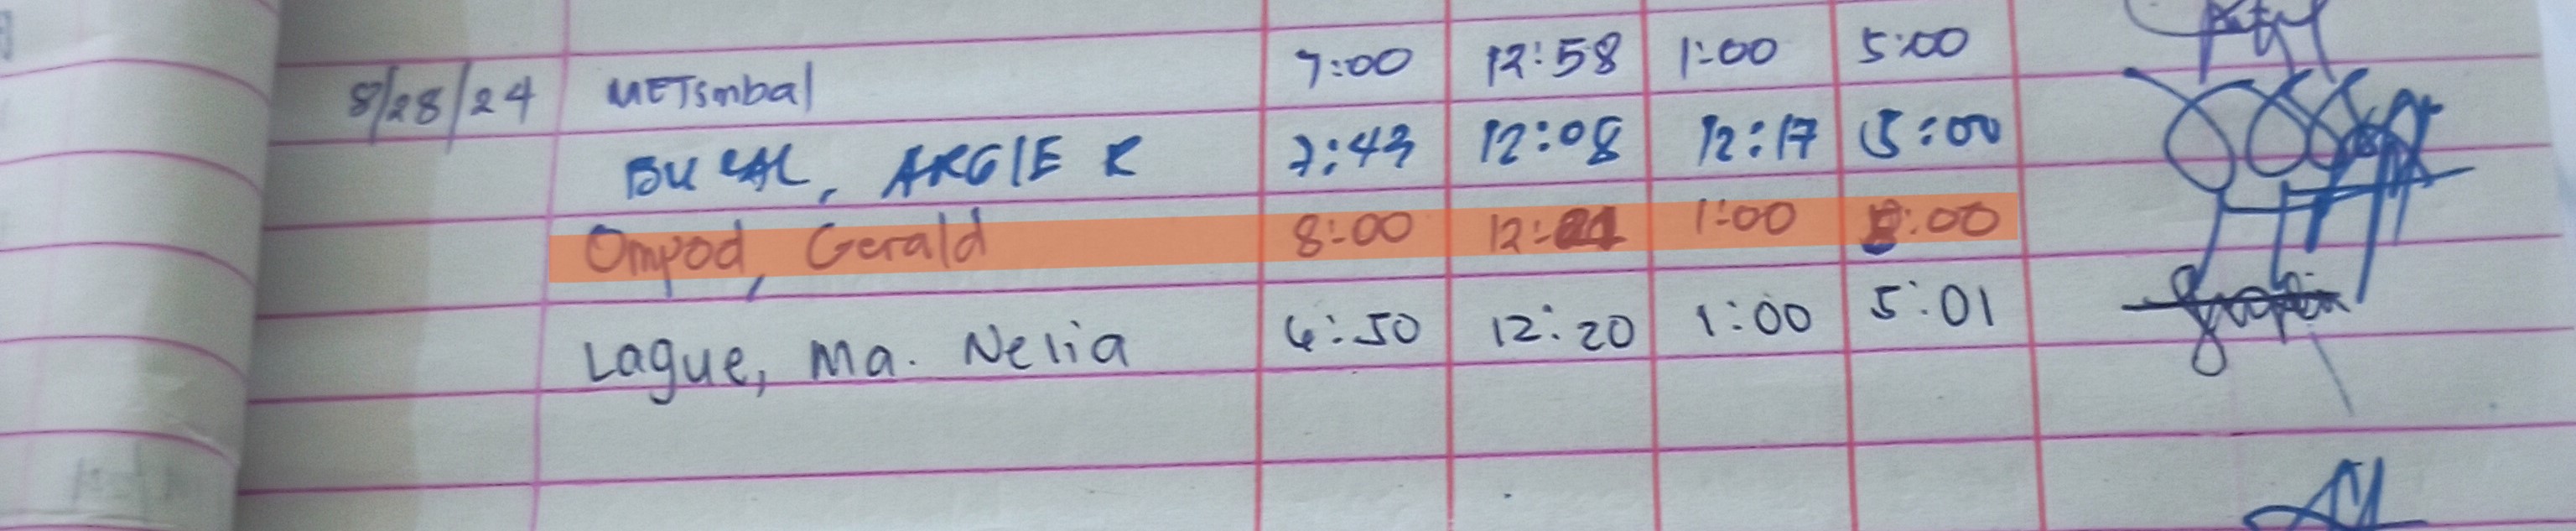 8/28/24 METsmbal 7:00 12:58 1:00 5:00
BUCAL, ARGIE R 7:43 12:08 12:17 5:00
Ompod, Gerald 8:00 1:00
Lague, Ma. Nelia 6:50 12:20 1:00 5:01